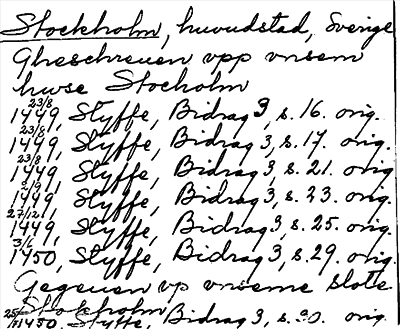 Stockholm, huvudstad, Sverige
Gheschreuen vpp vnsem
huse Stocholm
23/8
1449, Styffe, Bidrag 3, s. 16. orig.
23/8
1449, Styffe, Bidrag 3, s. 17. orig.
23/8
1449, Styffe, Bidrag 3, s. 21. orig.
2/9
1449, Styffe, Bidrag 3, s. 23. orig.
27/12
1449, Styffe, Bidrag 3, s. 25. orig.
3/1
1450, Styffe, Bidrag 3, s. 29. orig.
Gegeuen vp vnseme slote
Stokholm
25/1 1450, Styffe, Bidrag 3, s. 30. orig.